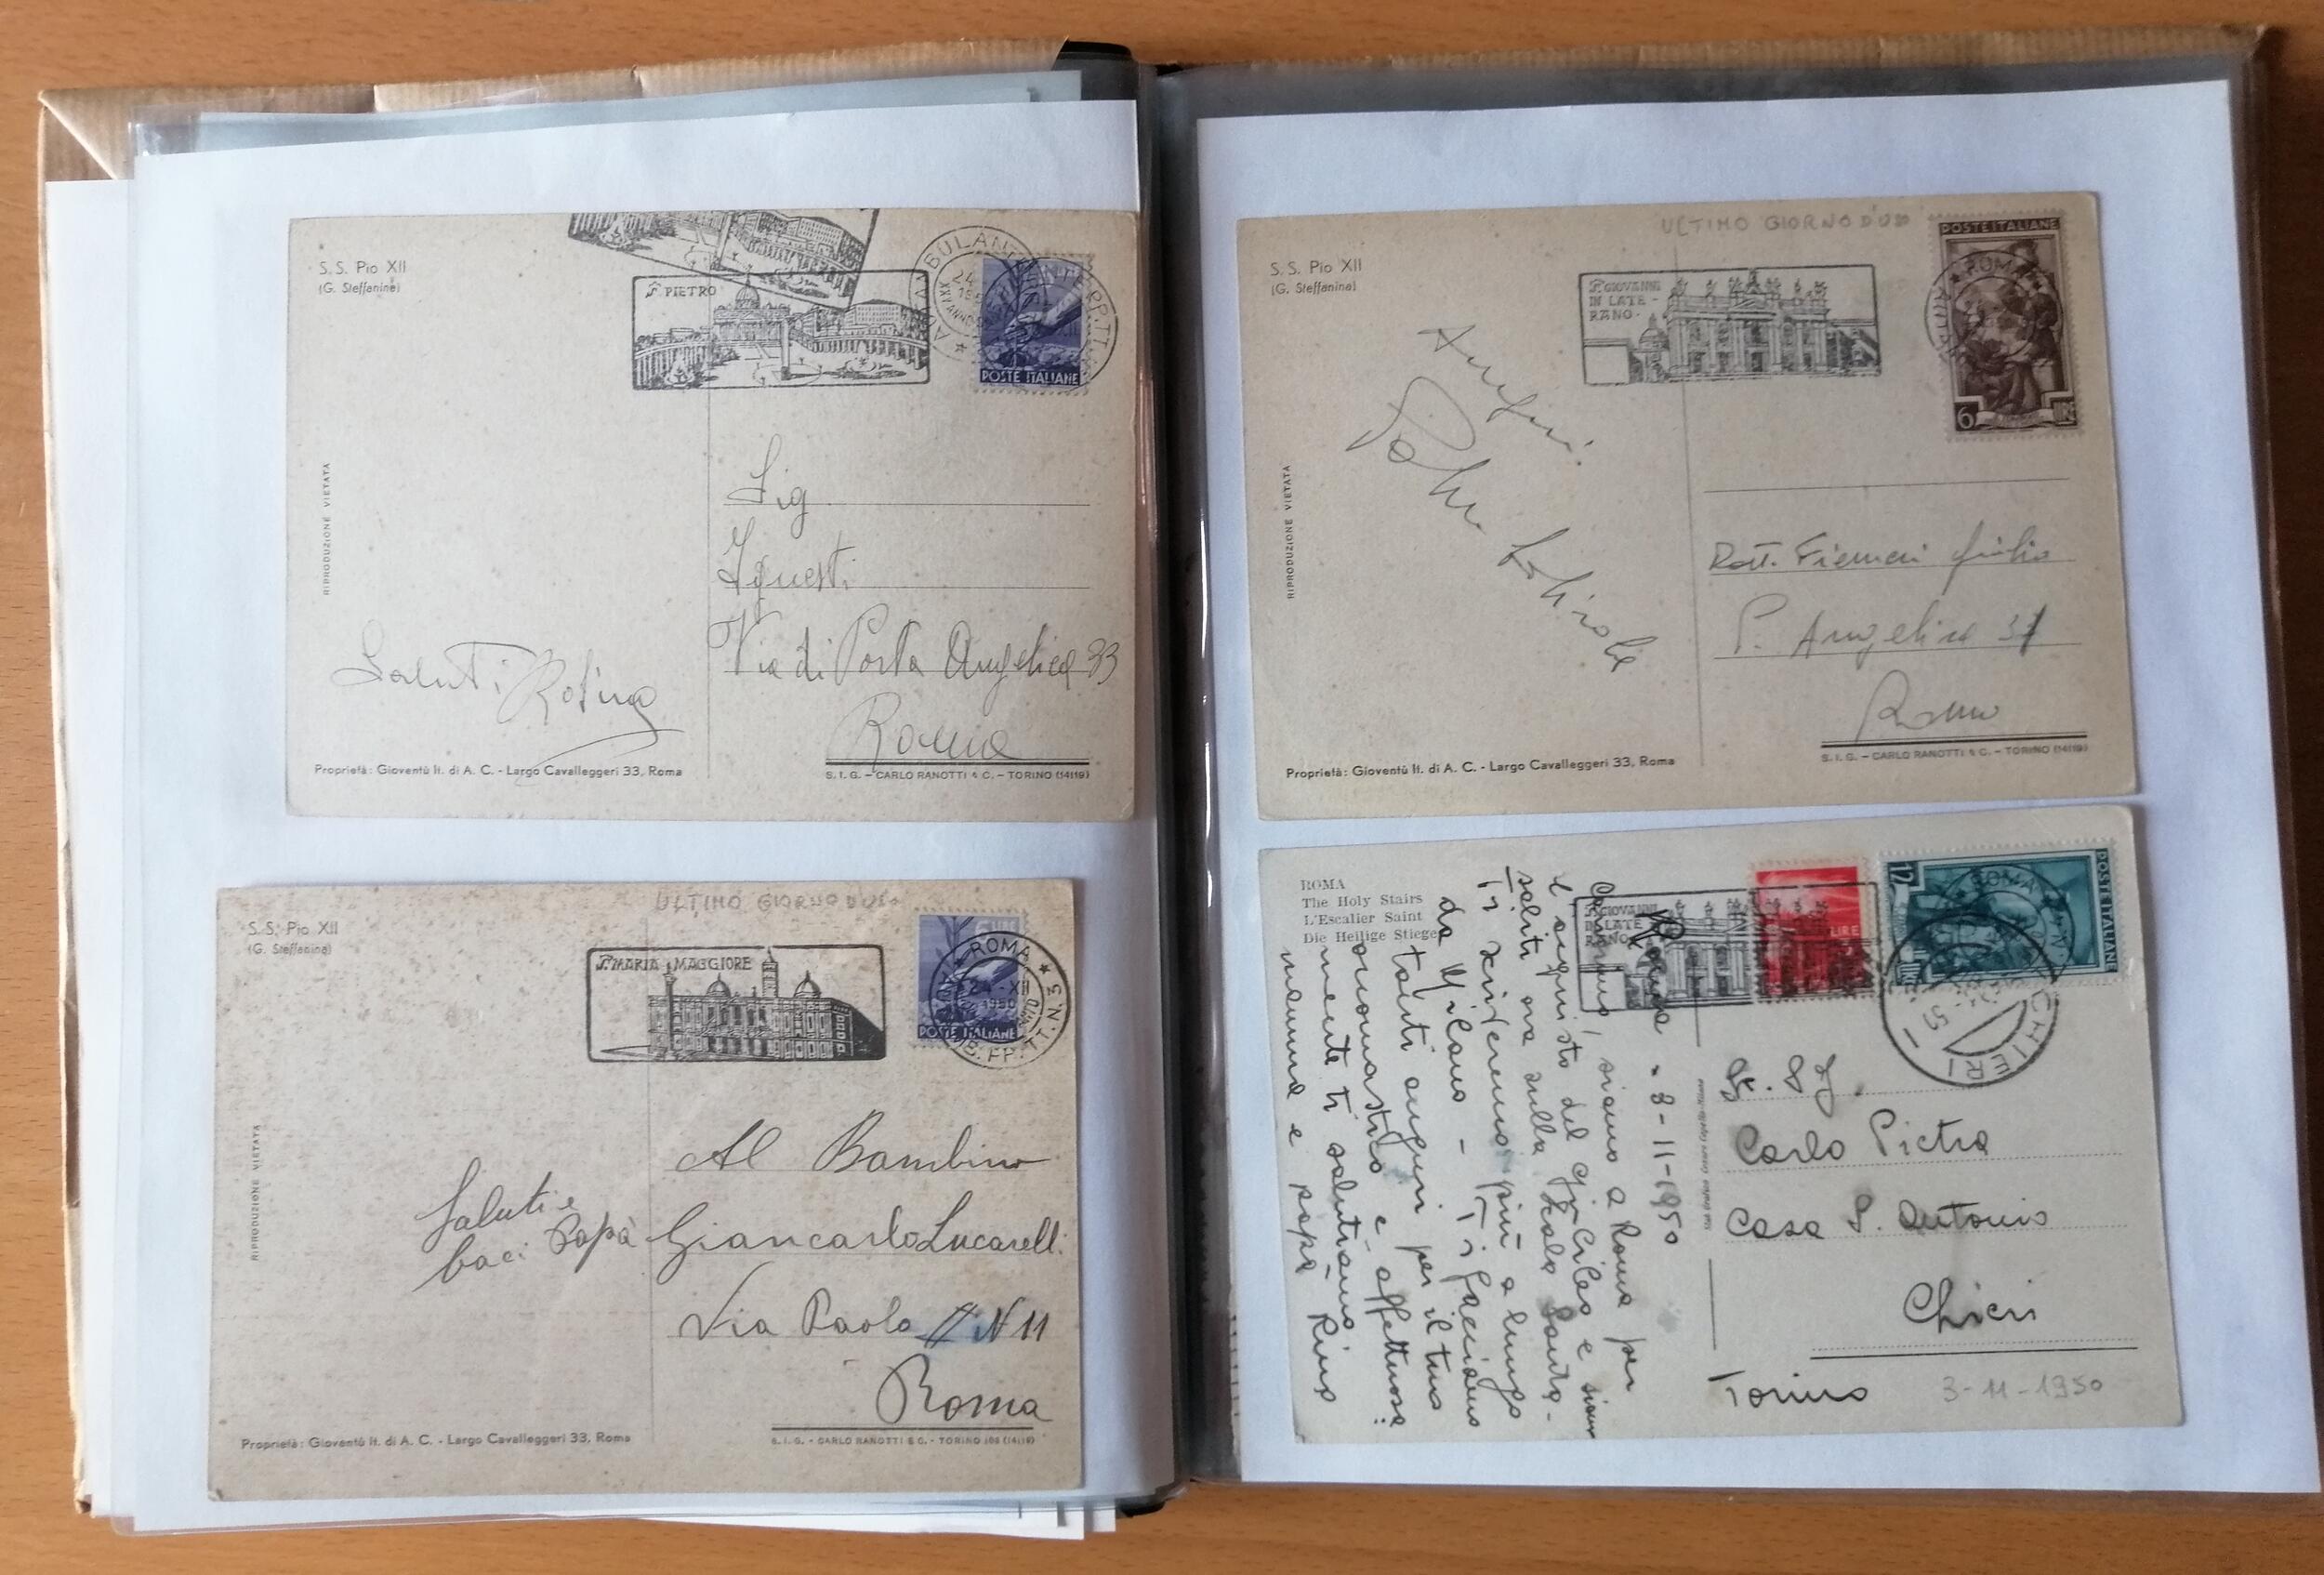 S. S. Pio XII
(G. Steffanina)
S. PIETRO
POSTE ITALIANE
RIPRODUZIONE VIETATA
Sig
Via di Porta Angelica 33
Roma
Saluti Rosina
Proprietà: Gioventù It. di A. C. - Largo Cavalleggeri 33, Roma
S. I. G. – CARLO RANOTTI & C. – TORINO (14119)
S. S. Pio XII
(G. Steffanina)
ULTIMO GIORNO D'USO
S. MARIA MAGGIORE
ROMA
24 - XII
1950
AMB. FF. TT. N. 3
POSTE ITALIANE
RIPRODUZIONE VIETATA
Al Bambino
Giancarlo Lucarelli
Via Paolo II N 11
Roma
Saluti e
baci Papà
Proprietà: Gioventù It. di A. C. - Largo Cavalleggeri 33, Roma
S. I. G. - CARLO RANOTTI & C. - TORINO
S. S. Pio XII
(G. Steffanina)
ULTIMO GIORNO D'USO
S. GIOVANNI
IN LATE-
RANO
POSTE ITALIANE
ROMA
6 LIRE
Auguri
RIPRODUZIONE VIETATA
Dott.
P. Angelica 37
Roma
Proprietà: Gioventù It. di A. C. - Largo Cavalleggeri 33, Roma
S. I. G. – CARLO RANOTTI & C. – TORINO (14119)
ROMA
The Holy Stairs
L'Escalier Saint
Die Heilige Stiege
S. GIOVANNI
IN LATE-
RANO
LIRE
12
POSTE ITALIANE
ROMA
CHIERI
Roma - 3-11-1950
siamo a Roma per
l'acquisto del Giubileo e siamo
saliti ora sulla Scala Santa -
Ti scriveremo più a lungo
da Milano - Ti facciamo
tanti auguri per il tuo
onomastico e affettuosa
mente ti salutiamo
mamma e papà Rina
Carlo Pietra
Casa S. Antonio
Chieri
Torino
3-11-1950